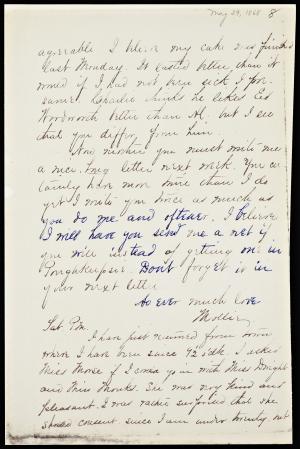 May 29, 1868 8
agreeable I believe my cake was finished
last Monday. It lasted better than it
would if I had not been sick I pre-
sume. Charlie thinks he likes Ed
Wordworth better than Al, but I see
that you differ from him.
Now mother you must write me
a nice long letter next week. You cer-
tainly have more time than I do
yet I write you twice as much as
you do me and oftener. I believe
I will have you send me a net if
you will instead of getting one in
Poughkeepsie. Don't forget it in
your next letter
As ever much love
Mollie
Sat. Pm.
I have just returned from town
where I have been since 12 o'clk. I asked
Miss Morse if I could go in with Miss Dwight
and Miss Monks. She was very kind and
pleasant. I was rather surprised that she
should consent since I am under twenty, but